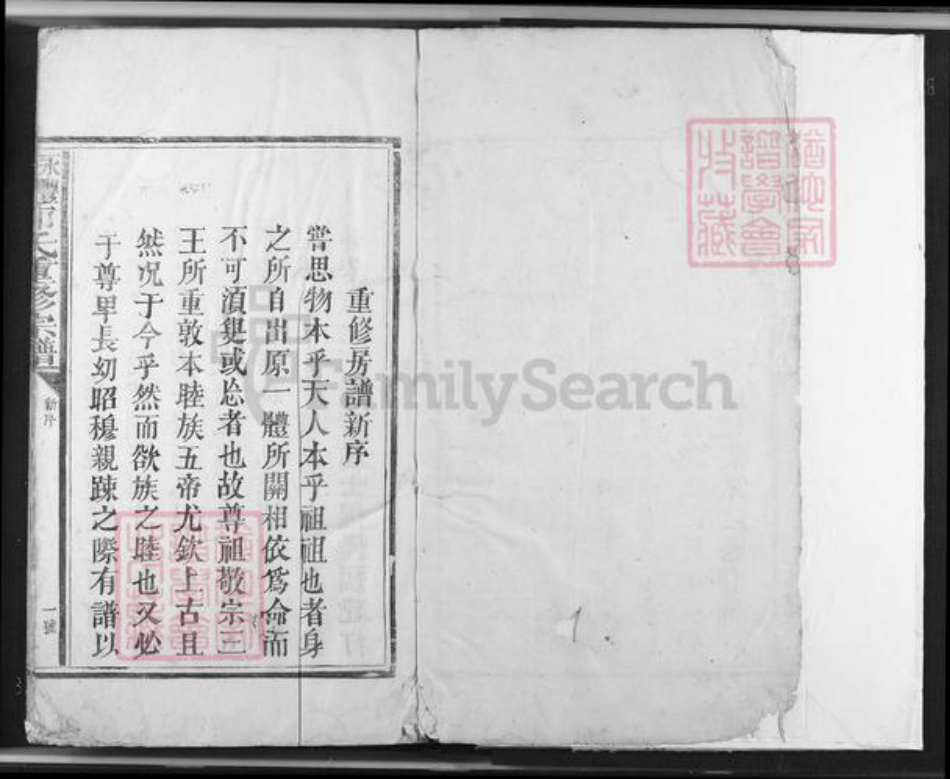 重修房譜新序
嘗思物本乎天人本乎祖祖也者身
之所自出原一體所關相依爲命而
不可湏㬰或忘者也故尊祖敬宗三
王所重敦本睦族五帝尤欽上古且
然況于今乎然而欲族之睦也又必
于尊卑長幼昭穆親踈之際有譜以
氏重修宗譜
新序
一號
猶他家
譜學會
收藏
FamilySearch
1